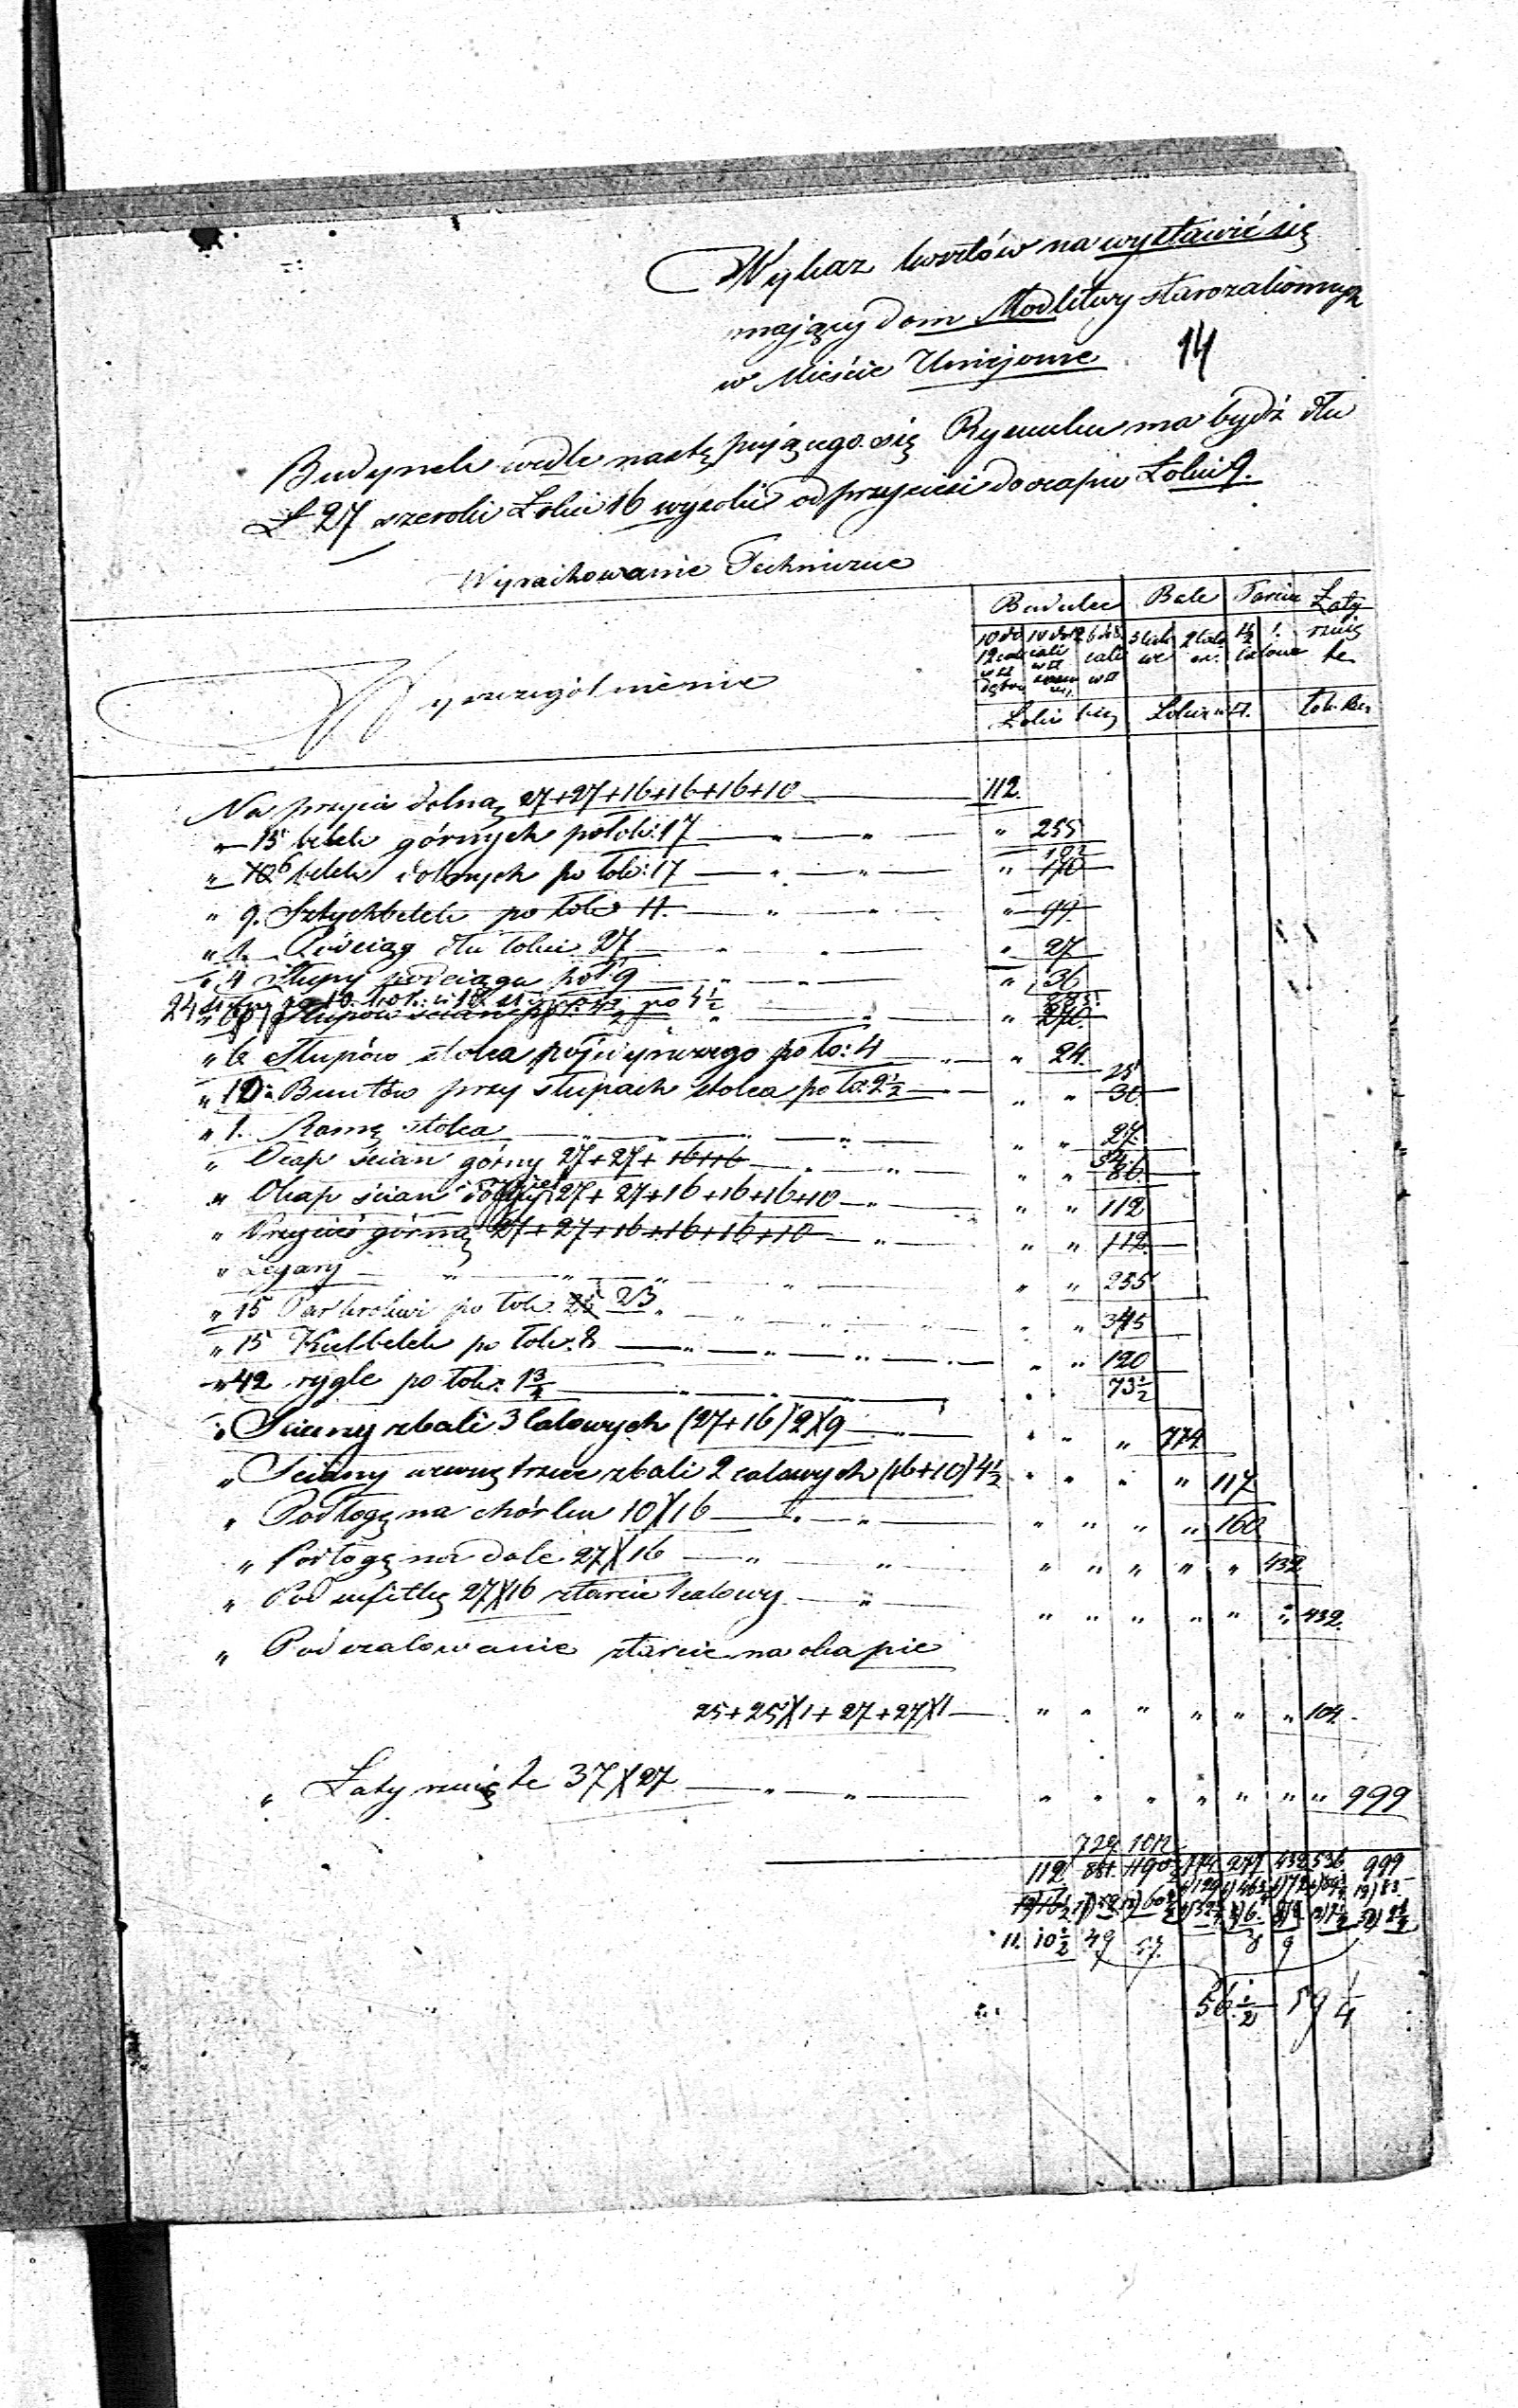 Wykaz kosztów na wystawić się
mający dom Modlitwy starozakonnych
w Mieście Uniejowie
14
Budynek wedle następującego się Rysunku ma bydź dłu
Ł 27 szeroki Łokci 16 wysoki od przyciesi do ocapu Łokci 9.
Wyrachowanie Techniczne
Wyszczególnienie
Budulec Bale Tarcice Łaty
Na przycieś dolną 27+27+16+16+16+10 112.
" 15 belek górnych po łok: 17 " 255
102
" 10 6 belek dolnych po łok: 17 " 170
" 9. Sztychbelek po łok 11. " 99.
" 1. Podciąg dłu łokci 27 " 27
" 4 Słupy podciągu po ł 9 " 36
24 po 4 1/2
" 270
" 6 Słupów stolca pojedynczego po ło: 4 " 24.
25
" 12 Buntów przy słupach stolca po ło: 2 1/2 " " 30.
" 1. Ramę stolca " " 27.
54.
" Ocap ścian górny 27+27+16+16 " " 86.
" Okap ścian 27+27+16+16+16+10 " " 112
" Przycieś górną 27+27+16+16+16+10 " " 112
" Legary " " 255
" 15 Par krokwi po łok. 23 " " 345
" 15 Kielbelek po łok: 8 " " 120
" 42 rygle po łok: 1 3/4 73 1/2
" Ściany z bali 3 calowych (27+16)2)(9 " " " 774
" Ściany wewnętrzne z bali 2 calowych (16+10) 4 1/2 " " " " 117
" Podłogę na chórku 10)(16 " " " " 160
" Podłogę na dole 27)(16 " " " " " 432
" Podsufitkę 27)(16 z tarcic 1 calowy " " " " " " 432.
" Podszalowanie z tarcic na okapie
25+25)(1+27+27)(1 " " " " " " 104.
" Łaty rznięte 37)(27 " " " " " " " 999
729 1012
112 881. 1190 774 277 432 536 999
11. 10 1/2 49 57. 8 9
56 1/2 59 1/4